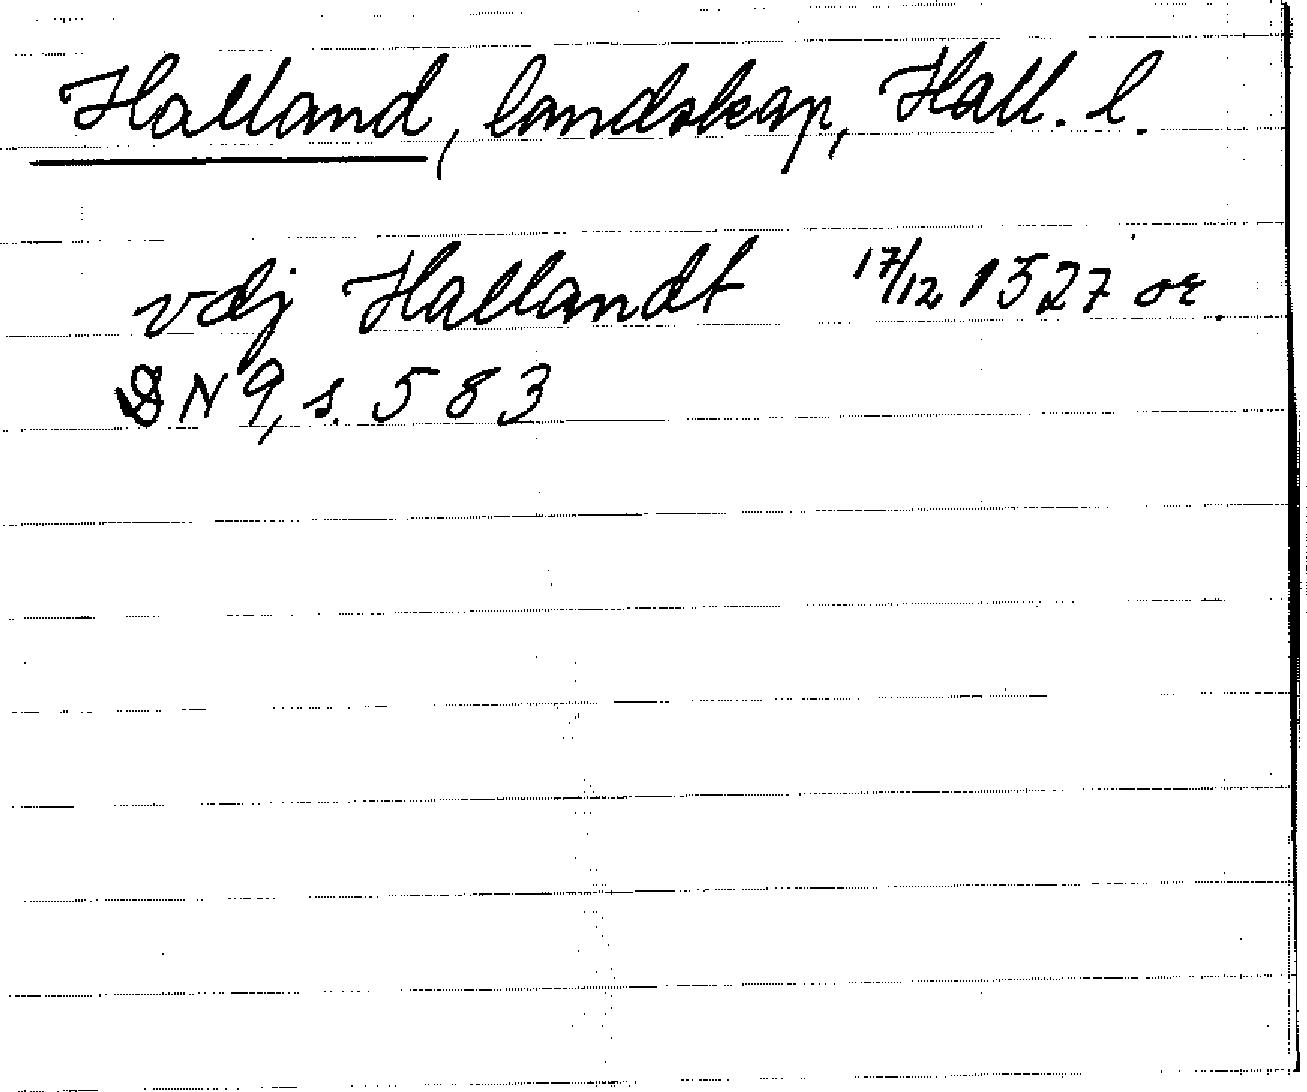 Halland, landskap, Hall. l.
vdj Hallandt 17/12 1527 or.
DN 9, s. 583